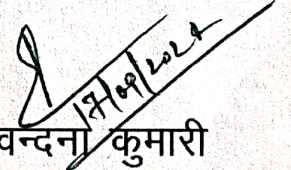 17/09/2024
वन्दना कुमारी